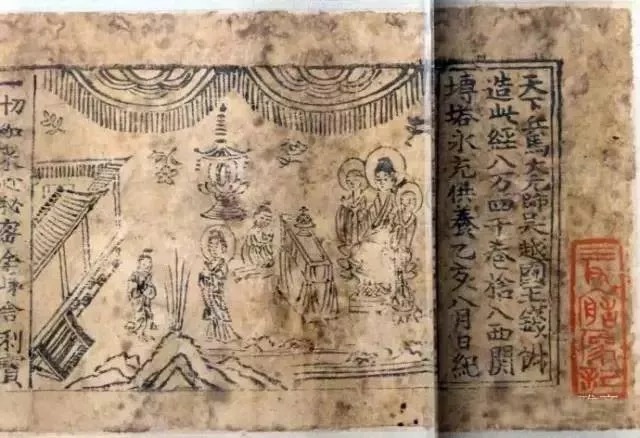 天下兵馬大元帥吳越國王錢俶
造此經八万四千卷捨入西關
塼塔永充供養乙亥八月日紀
一切如来心秘密全身舍利寶